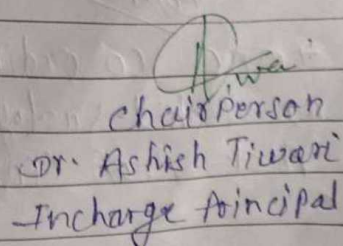 Chairperson
Dr. Ashish Tiwari
Incharge Principal